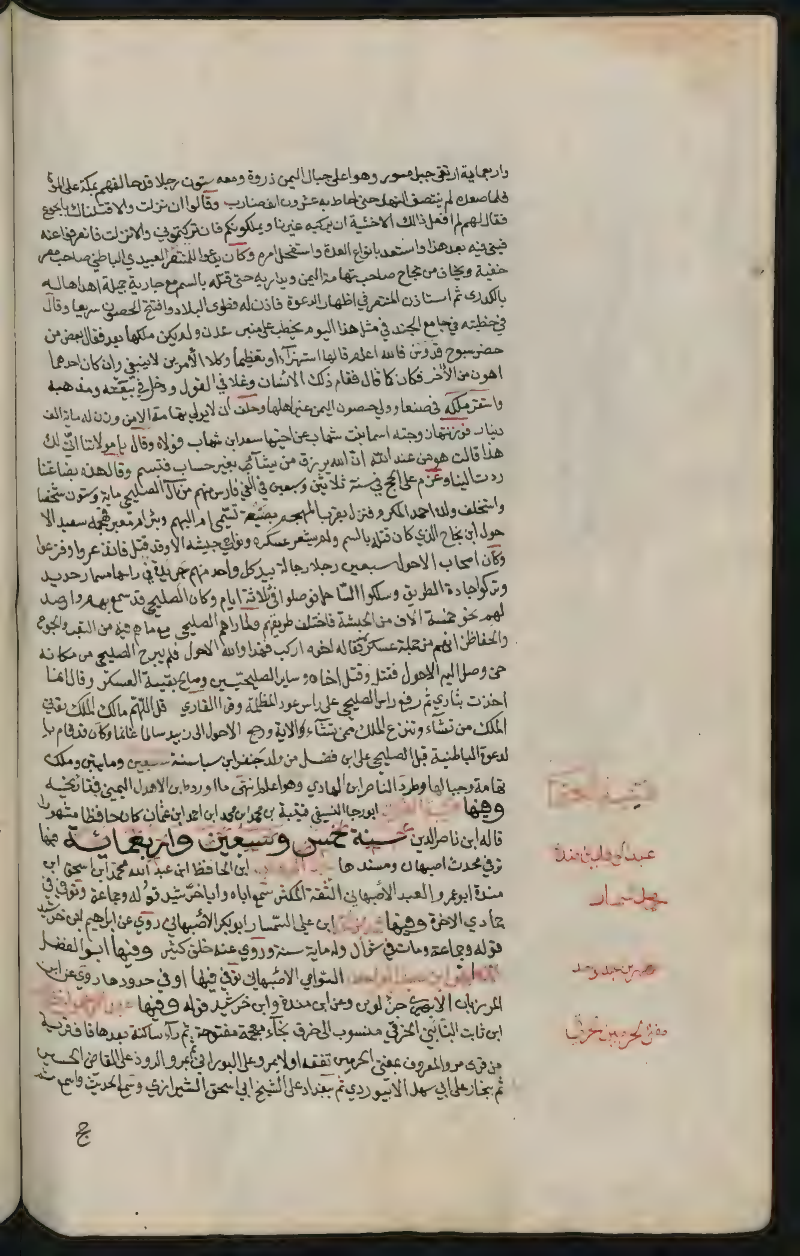 واربعماية ارتقى جبل مسور وهو اعلى جبال اليمن ذروة ومعه ستون رجلا قد حالفهم بمكة على الموت
فلما صعده لم ينتصف النهار حتى احاط به عشرون الف ضارب وقالوا ان نزلت والا قتلناك بالجوع
فقال لهم لم افعل ذالك الا خشية ان يركبه غيرنا ويملكونكم فان تركتموني والا نزلت فانصرفوا عنه
فبنى فيه بعد هذا واستعد بانواع العدة واستفحل امره وكان يدعو المنتصر العبيدي الباطني صاحب مصر
خفية ويخاف من نجاح صاحب تهامة اليمن ويداريه حتى قتله بالسم مع جارية جميلة اهداها له
بالكدرى ثم استاذن المنتصر في اظهار الدعوة فاذن له فطوى البلاد وافتتح الحصون سريعا وقال
في خطبته في جامع الجند في مثل هذا اليوم يخطب على منبر عدن ولم يكن ملكها بعد فقال بعض من
حضر سبوح قدوس فالله اعلم قالها استهزآءا او تعظيما وكلا الأمرين لا ينبغي وان كان احدهما
اهون من الآخر فكان كما قال فقام ذلك الانسان وغلا في القول ودخل في بيعته ومذهبه
واستقر ملكه في صنعا وولى حصون اليمن غير اهلها وحلف ان لا يولي تهامة الا من وزن له ماية الف
دينار فوزنتها زوجته اسما بنت شهاب عن اخيها سعد ابن شهاب فولاه وقال يا مولاتنا انى لك
هذا قالت هو من عند الله ان الله يرزق من يشآء بغير حساب فتبسم وقال هذه بضاعتنا
ردت الينا وعزم على الحج في سنة ثلاث وسبعين في الفي فارس منهم من آل الصليحي ماية وستون شخصا
واستخلف ولده احمد المكرم ونزل بقرب المهجم بضيعة تسمى ام الدهيم وبئر ام معبد فهجمه سعيد الا
حول ابن نجاح الذي كان قتله بالسم ولم يشعر عسكره ونواحي جيشه الا وقد قتل فانذعروا وفزعوا
وكان اصحاب الاحول سبعين رجلا رجالة بيد كل واحد منهم جريدة في راسها مسمار حديد
وتركوا جادة الطريق وسلكوا الساحل فوصلوا في ثلاثة ايام وكان الصليحي قد سمع بهم وارصد
لهم نحو خمسة الاف من الحبشة فاختلف طريقهم ولما راهم الصليحي مع ما هم فيه من التعب والجوع
والحفا ظن انهم من جملة عسكره فقال له اخوه اركب فهذا والله الاحول فلم يبرح الصليحي من مكانه
حتى وصل اليه الاحول فقتله وقتل اخاه وساير الصليحيين وصالح بقية العسكر وقال انما
اخذت بثاري ثم رفع راس الصليحي على راس عود المظلة وقرا القاري قل اللهم مالك الملك تؤتي
الملك من تشاء وتنزع الملك ممن تشآء الاية ورجع الاحول الى زبيد سالما غانما وكان قد قام با
لدعوة الباطنية قبل الصليحي علي ابن فضل من ولد جنفر ابن سبا سنة سبعين ومايتين وملك
تهامة وجبالها وطرد الناصر ابن الهادي وهو اعلم انتهى ما اورده ابن الاهدل اليمني في تاريخه
وفيها قتيبة ابو رجا النسفي قتيبة بن محمد ابن محمد ابن احمد ابن عثمان كان حافظا مشهورا
قاله ابن ناصر الدين سنة خمس وسبعين واربعماية فيها
توفي محدث اصبهان ومسندها ابن الحافظ ابن عبد الله محمد ابن اسحق ابن
مندة ابو عمرو العبدي الاصبهاني الثقة المكثر سمع اباه وابا خرشيد قوله وجماعة وتوفي في
جمادي الاخرة وفيها ابن علي السمسار ابو بكر الاصبهاني روى عن ابراهيم ابن خرشيد
قوله وجماعة ومات في شوال وله ماية سنة وروى عنه خلق كثير وفيها ابو الفضل
ابن عبد الواحد الاصبهان توفي فيها او في حدودها روى عن ابن
المرزبان الابهري جزء لوين وعن ابن مندة وابن خرشيد قوله وفيها
ابن ثابت الثابتي الخرقي منسوب الى خرق بخآء معجمة مفتوحة ثم رآء ساكنة بعدها قاف قرية
من قرى مرو المعروف بمفتى الحرمين تفقه اولا بمرو على الفوراني ثم بمرو الروذ على القاضي الحسين
ثم ببخارا على ابي سهل الابيوردي ثم ببغداد على الشيخ ابي اسحق الشيرازي وسمع الحديث واسمع
قتيبة النسفي
عبد الوهاب بن مندة
سمسار
مفتى الحرمين خرقي